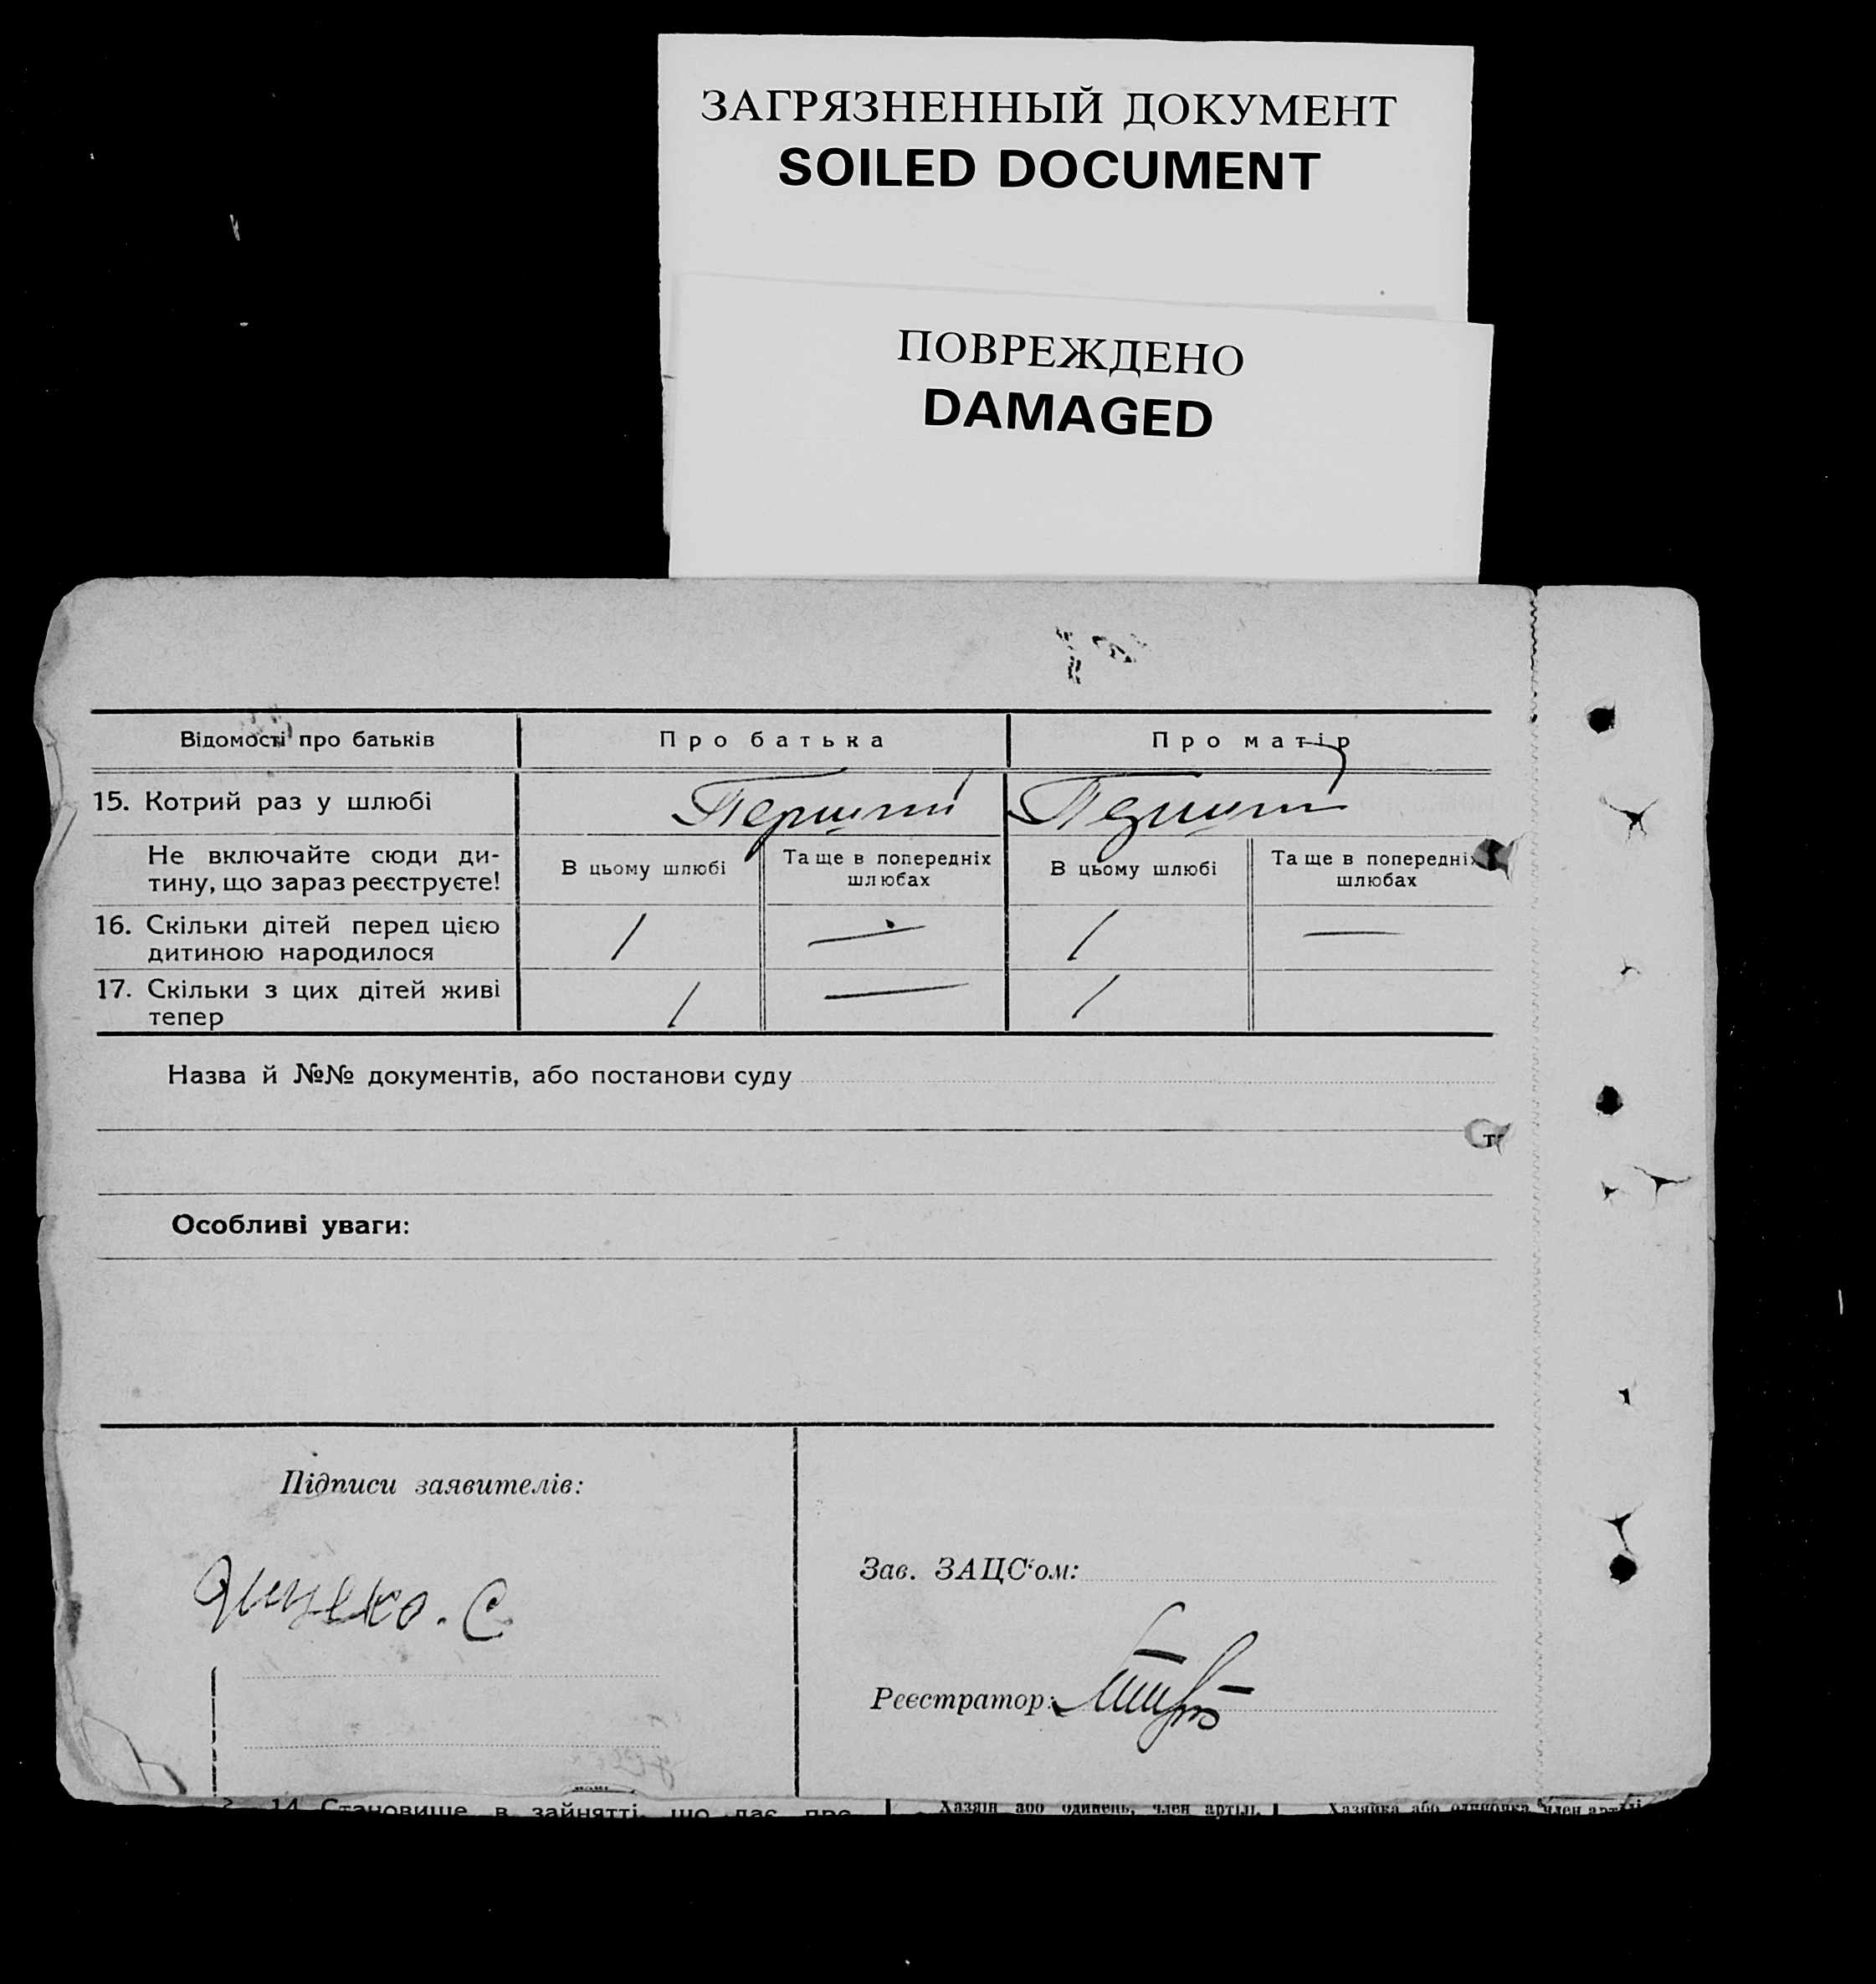 ЗАГРЯЗНЕННЫЙ ДОКУМЕНТ
SOILED DOCUMENT
ПОВРЕЖДЕНО
DAMAGED
Відомості про батьків
Про батька
Про матір
15. Котрий раз у шлюбі
Перший
Перший
Не включайте сюди ди-
тину, що зараз реєструєте!
В цьому шлюбі
Та ще в попередніх
шлюбах
В цьому шлюбі
Та ще в попередніх
шлюбах
16. Скільки дітей перед цією
дитиною народилося
1
—
1
—
17. Скільки з цих дітей живі
тепер
1
—
1
Назва й №№ документів, або постанови суду
Особливі уваги:
Підписи заявителів:
С
Зав. ЗАЦС'ом:
Реєстратор:
14 Становище в зайнятті, що дає про
Хазяїн або одинець, член артілі,
Хазяйка або одиночка, член артілі